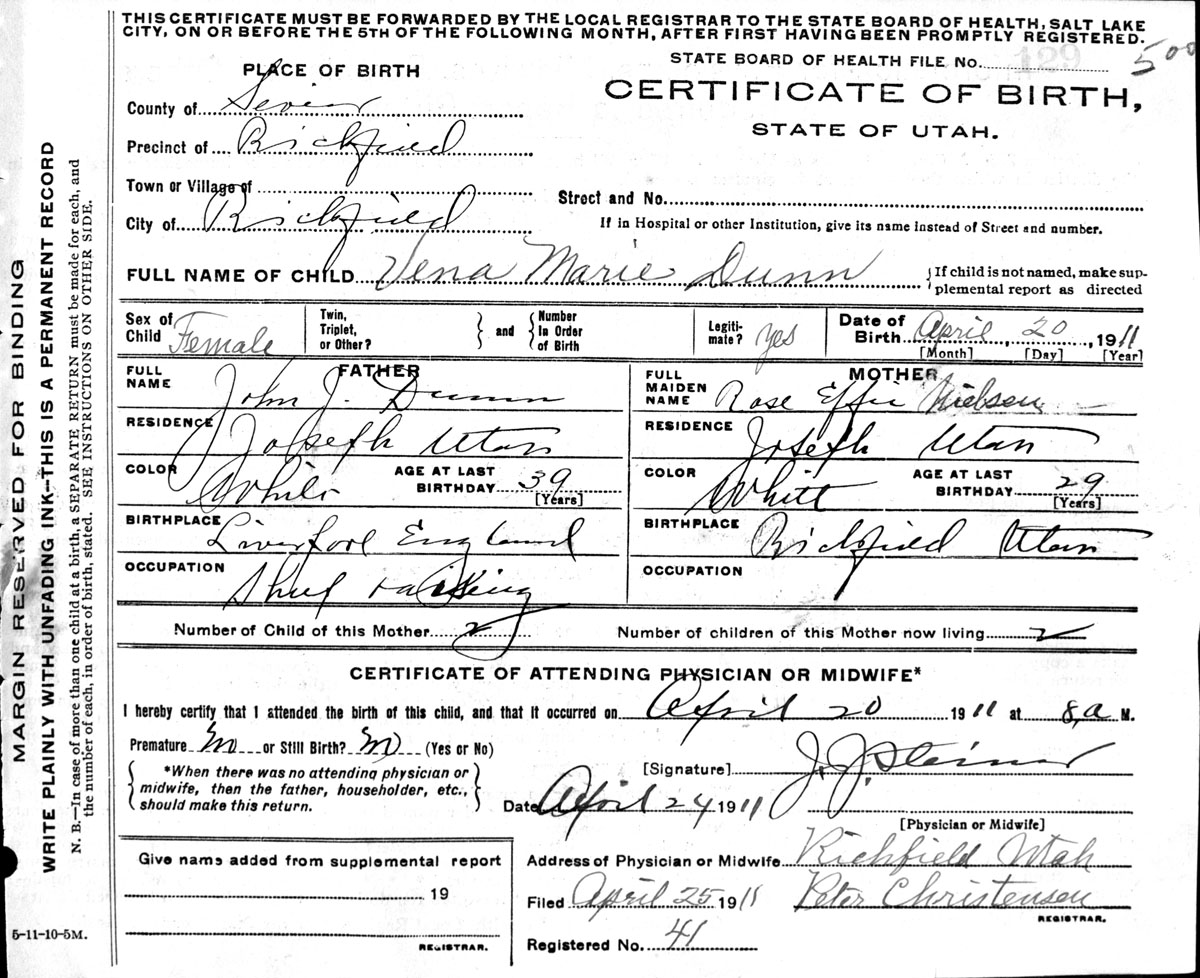 THIS CERTIFICATE MUST BE FORWARDED BY THE LOCAL REGISTRAR TO THE STATE BOARD OF HEALTH, SALT LAKE
CITY, ON OR BEFORE THE 5TH OF THE FOLLOWING MONTH, AFTER FIRST HAVING BEEN PROMPTLY REGISTERED.
STATE BOARD OF HEALTH FILE No. 129
500
PLACE OF BIRTH
CERTIFICATE OF BIRTH,
STATE OF UTAH.
County of Sevier
Precinct of Richfield
Town or Village of
Street and No.
City of Richfield
If in Hospital or other Institution, give its name instead of Street and number.
FULL NAME OF CHILD Vena Marie Dunn
If child is not named, make sup-
plemental report as directed
Sex of Child Female
Twin, Triplet, or Other?
and
Number in Order of Birth
Legiti-mate? yes
Date of Birth April 20, 1911
[Month] [Day] [Year]
FATHER
FULL NAME John J. Dunn
RESIDENCE Joseph Utah
COLOR White
AGE AT LAST BIRTHDAY 39
[Years]
BIRTHPLACE Liverpool England
OCCUPATION
MOTHER
FULL MAIDEN NAME Rose Effie Nielsen
RESIDENCE Joseph Utah
COLOR White
AGE AT LAST BIRTHDAY 29
[Years]
BIRTHPLACE Richfield Utah
OCCUPATION
Number of Child of this Mother 2
Number of children of this Mother now living 2
CERTIFICATE OF ATTENDING PHYSICIAN OR MIDWIFE*
I hereby certify that I attended the birth of this child, and that it occurred on April 20 1911 at 8 a M.
Premature No or Still Birth? No (Yes or No)
*When there was no attending physician or
midwife, then the father, householder, etc.,
should make this return.
[Signature] J. J. Steiner
Date April 24 1911
[Physician or Midwife]
Give name added from supplemental report
19
REGISTRAR.
Address of Physician or Midwife Richfield Utah
Filed April 25 1911 Peter Christensen
REGISTRAR.
Registered No. 41
5-11-10-5M.
MARGIN RESERVED FOR BINDING
WRITE PLAINLY WITH UNFADING INK—THIS IS A PERMANENT RECORD
N. B.—In case of more than one child at a birth, a SEPARATE RETURN must be made for each, and
the number of each, in order of birth, stated. SEE INSTRUCTIONS ON OTHER SIDE.